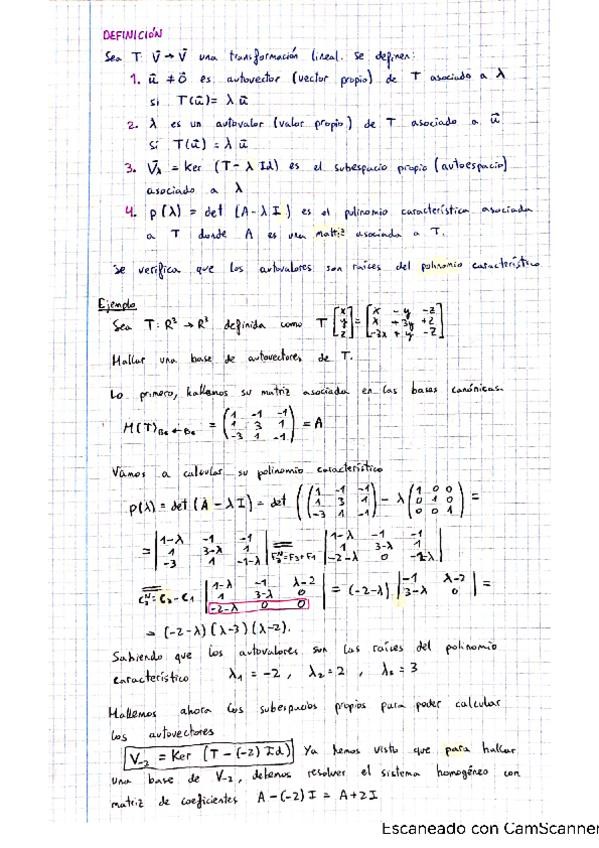 DEFINICIÓN
Sea T: V̄ → V̄ una transformación lineal. se definen:
1. ū ≠ ō es autovector (vector propio) de T asociado a λ
si T(ū) = λ ū
2. λ es un autovalor (valor propio) de T asociado a ū
si T(ū) = λ ū
3. V̄λ = Ker (T - λ Id) es el subespacio propio (autoespacio)
asociado a λ
4. p(λ) = det (A - λ I) es el polinomio característico asociada
a T donde A es una matriz asociada a T.
se verifica que los autovalores son raíces del polinomio característico
Ejemplo
Sea T: R³ → R³ definida como T [x y z] = [x - y - z; x + 3y + z; -3x + y - z]
Hallar una base de autovectores de T.
Lo primero, hallemos su matriz asociada en las bases canónicas.
M(T)Bc←Bc = (1 -1 -1; 1 3 1; -3 1 -1) = A
Vamos a calcular su polinomio característico
p(λ) = det (A - λ I) = det ((1 -1 -1; 1 3 1; -3 1 -1) - λ (1 0 0; 0 1 0; 0 0 1) =
= |1-λ -1 -1; 1 3-λ 1; -3 1 -1-λ| = F₃ᴺ=F₃+F₁ |1-λ -1 -1; 1 3-λ 1; -2-λ 0 -2-λ|
= C₃ᴺ=C₃-C₁ |1-λ -1 λ-2; 1 3-λ 0; -2-λ 0 0| = (-2-λ) |-1 λ-2; 3-λ 0| =
= (-2-λ)(λ-3)(λ-2).
Sabiendo que los autovalores son las raíces del polinomio
característico λ₁ = -2, λ₂ = 2, λ₃ = 3
Hallemos ahora los subespacios propios para poder calcular
los autovectores
V₋₂ = Ker (T - (-2) Id) Ya hemos visto que para hallar
una base de V₋₂, debemos resolver el sistema homogéneo con
matriz de coeficientes A - (-2) I = A + 2I
Escaneado con CamScanner